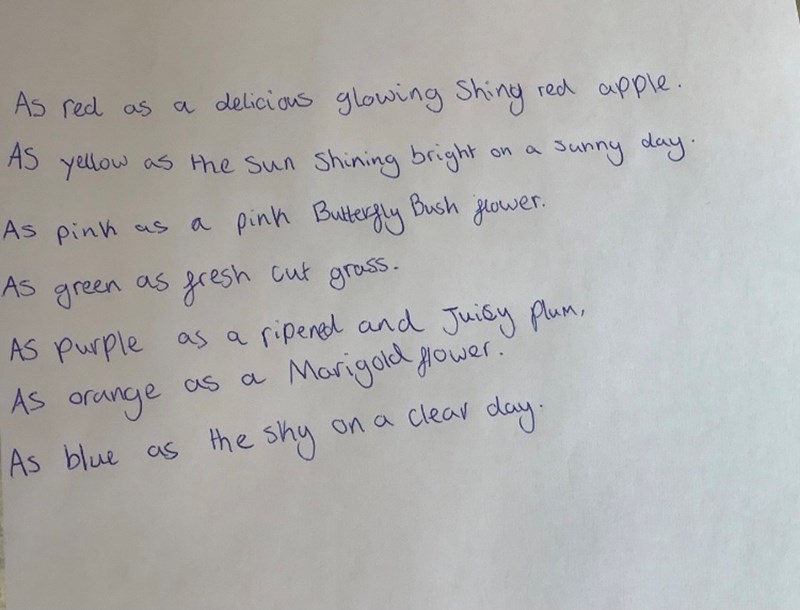 As red as a delicious glowing Shing red apple.
As yellow as the Sun Shining bright on a sunny day.
As pink as a pink Butterfly Bush flower.
As green as fresh cut grass.
As purple as a ripened and Juisy plum,
As orange as a Marigold flower.
As blue as the sky on a clear day.